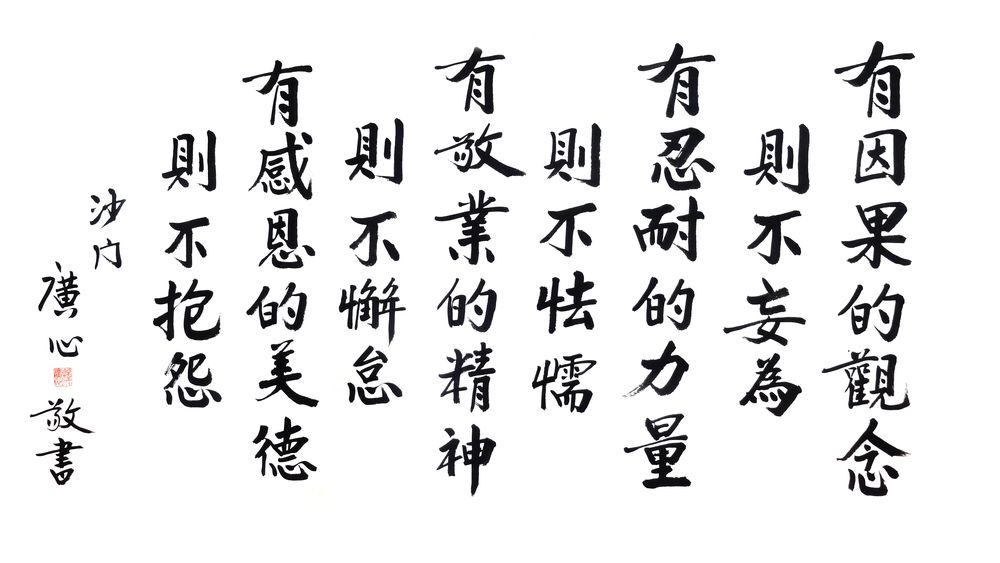 有因果的觀念
則不妄為
有忍耐的力量
則不怯懦
有敬業的精神
則不懈怠
有感恩的美德
則不抱怨
沙门
廣心
敬書